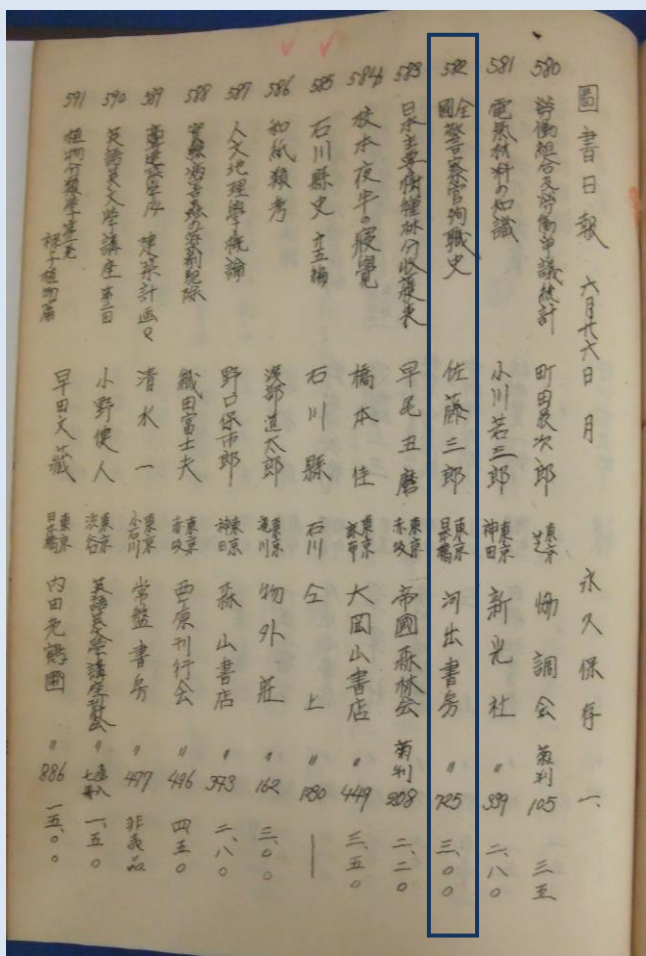 圖書日報 六月廿六日 月 永久保存 一、
580 労働組合及労働争議統計 町田辰次郎 東京芝 協調会 菊判 105 三五
581 電氣材料の知識 小川若三郎 東京神田 新光社 〃 339 二、八〇
582 全國警察官殉職史 佐藤三郎 東京日本橋 河出書房 〃 725 三、〇〇
583 日本主要樹種林分收穫表 早尾丑麿 東京赤坂 帝國森林会 菊判 208 二、二〇
584 校本夜半の寝覺 橋本佳 東京麻布 大岡山書店 〃 449 三、五〇
585 石川縣史 才五編 石川縣 石川 仝上 〃 1280 ―
586 和紙類考 漢部道太郎 東京滝川 物外荘 〃 162 三、〇〇
587 人文地理學概論 野口保市郎 東京神田 森山書店 〃 343 二、八〇
588 実験病害虫の薬剤駆除 織田富士夫 東京赤坂 西ヶ原刊行会 〃 496 四五〇
589 高等建築学14 建築計画2 清水一 東京小石川 常盤書房 〃 477 非売品
590 英語英文学講座 第二回 小野健人 東京渋谷 英語英文學講座刊行会 〃 一、五〇
591 植物分類學 第一巻 裸子植物篇 早田文藏 東京日本橋 内田老鶴圃 〃 886 一五、〇〇